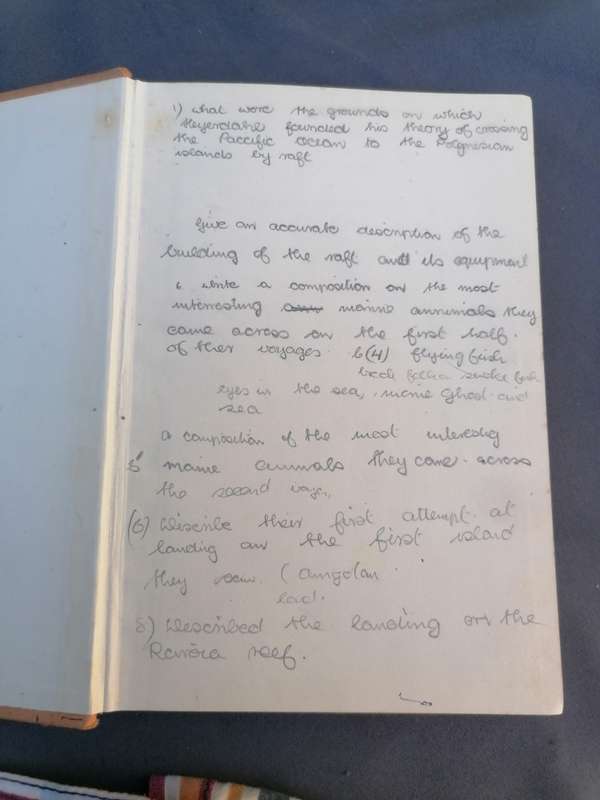 1) what were the grounds on which
Heyerdahe founded his theory of crossing
the Paccific ocean to the Polynesian
islands by raft
Give an accurate description of the
building of the raft and its equipment
write a composition on the most
interesting marine annimals they
came across on the first half.
of their voyages. b(4) flying fish
snake fish
eyes in the sea, marine Ghost and
sea
a composition of the most interesting
5 marine animals they came across
the second
(6) Discribe their first attempt at
landing on the first island
they saw. (angolan
8) Described the landing on the
Raroia reef.